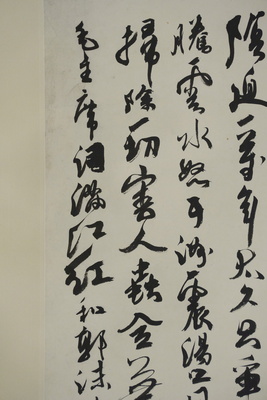 陰迫一萬年太久只爭
騰雲水怒五洲震蕩風
掃除一切害人蟲全無
毛主席詞滿江紅和郭沫